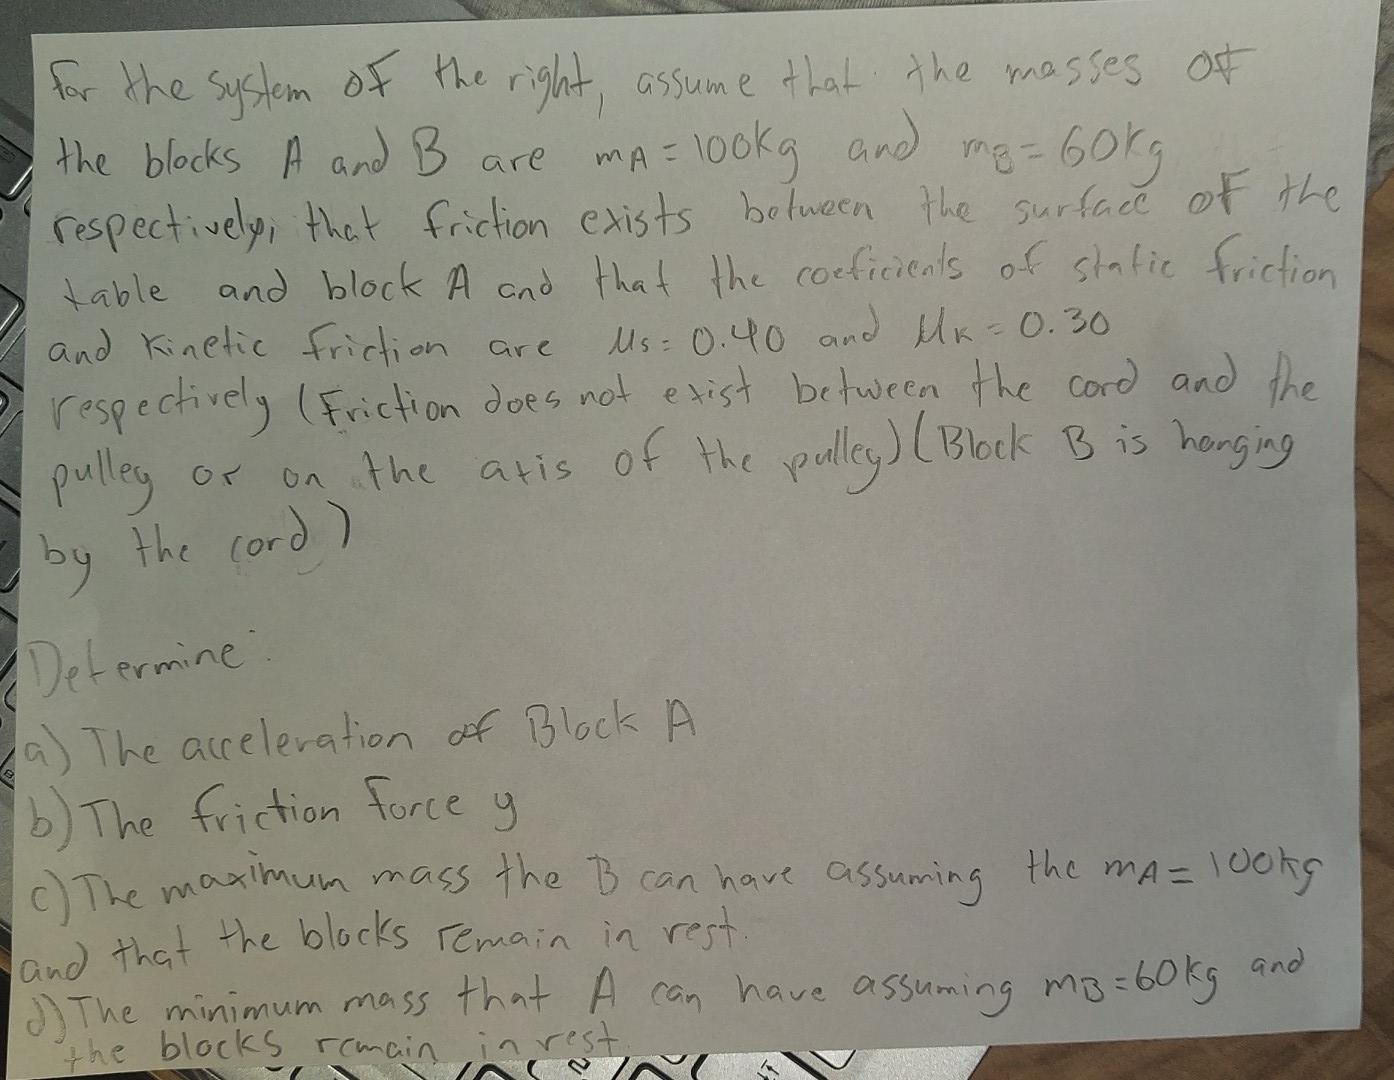 For the system of the right, assume that the masses of
the blocks A and B are mA = 100kg and mB = 60kg
respectively; that friction exists between the surface of the
table and block A and that the coeficients of static friction
and kinetic friction are Ms = 0.40 and Mk = 0.30
respectively (Friction does not exist between the cord and the
pulley or on the axis of the pulley) (Block B is hanging
by the cord)
Determine:
a) The acceleration of Block A
b) The friction force y
c) The maximum mass the B can have assuming the mA = 100kg
and that the blocks remain in rest.
d) The minimum mass that A can have assuming mB = 60kg and
the blocks remain in rest.